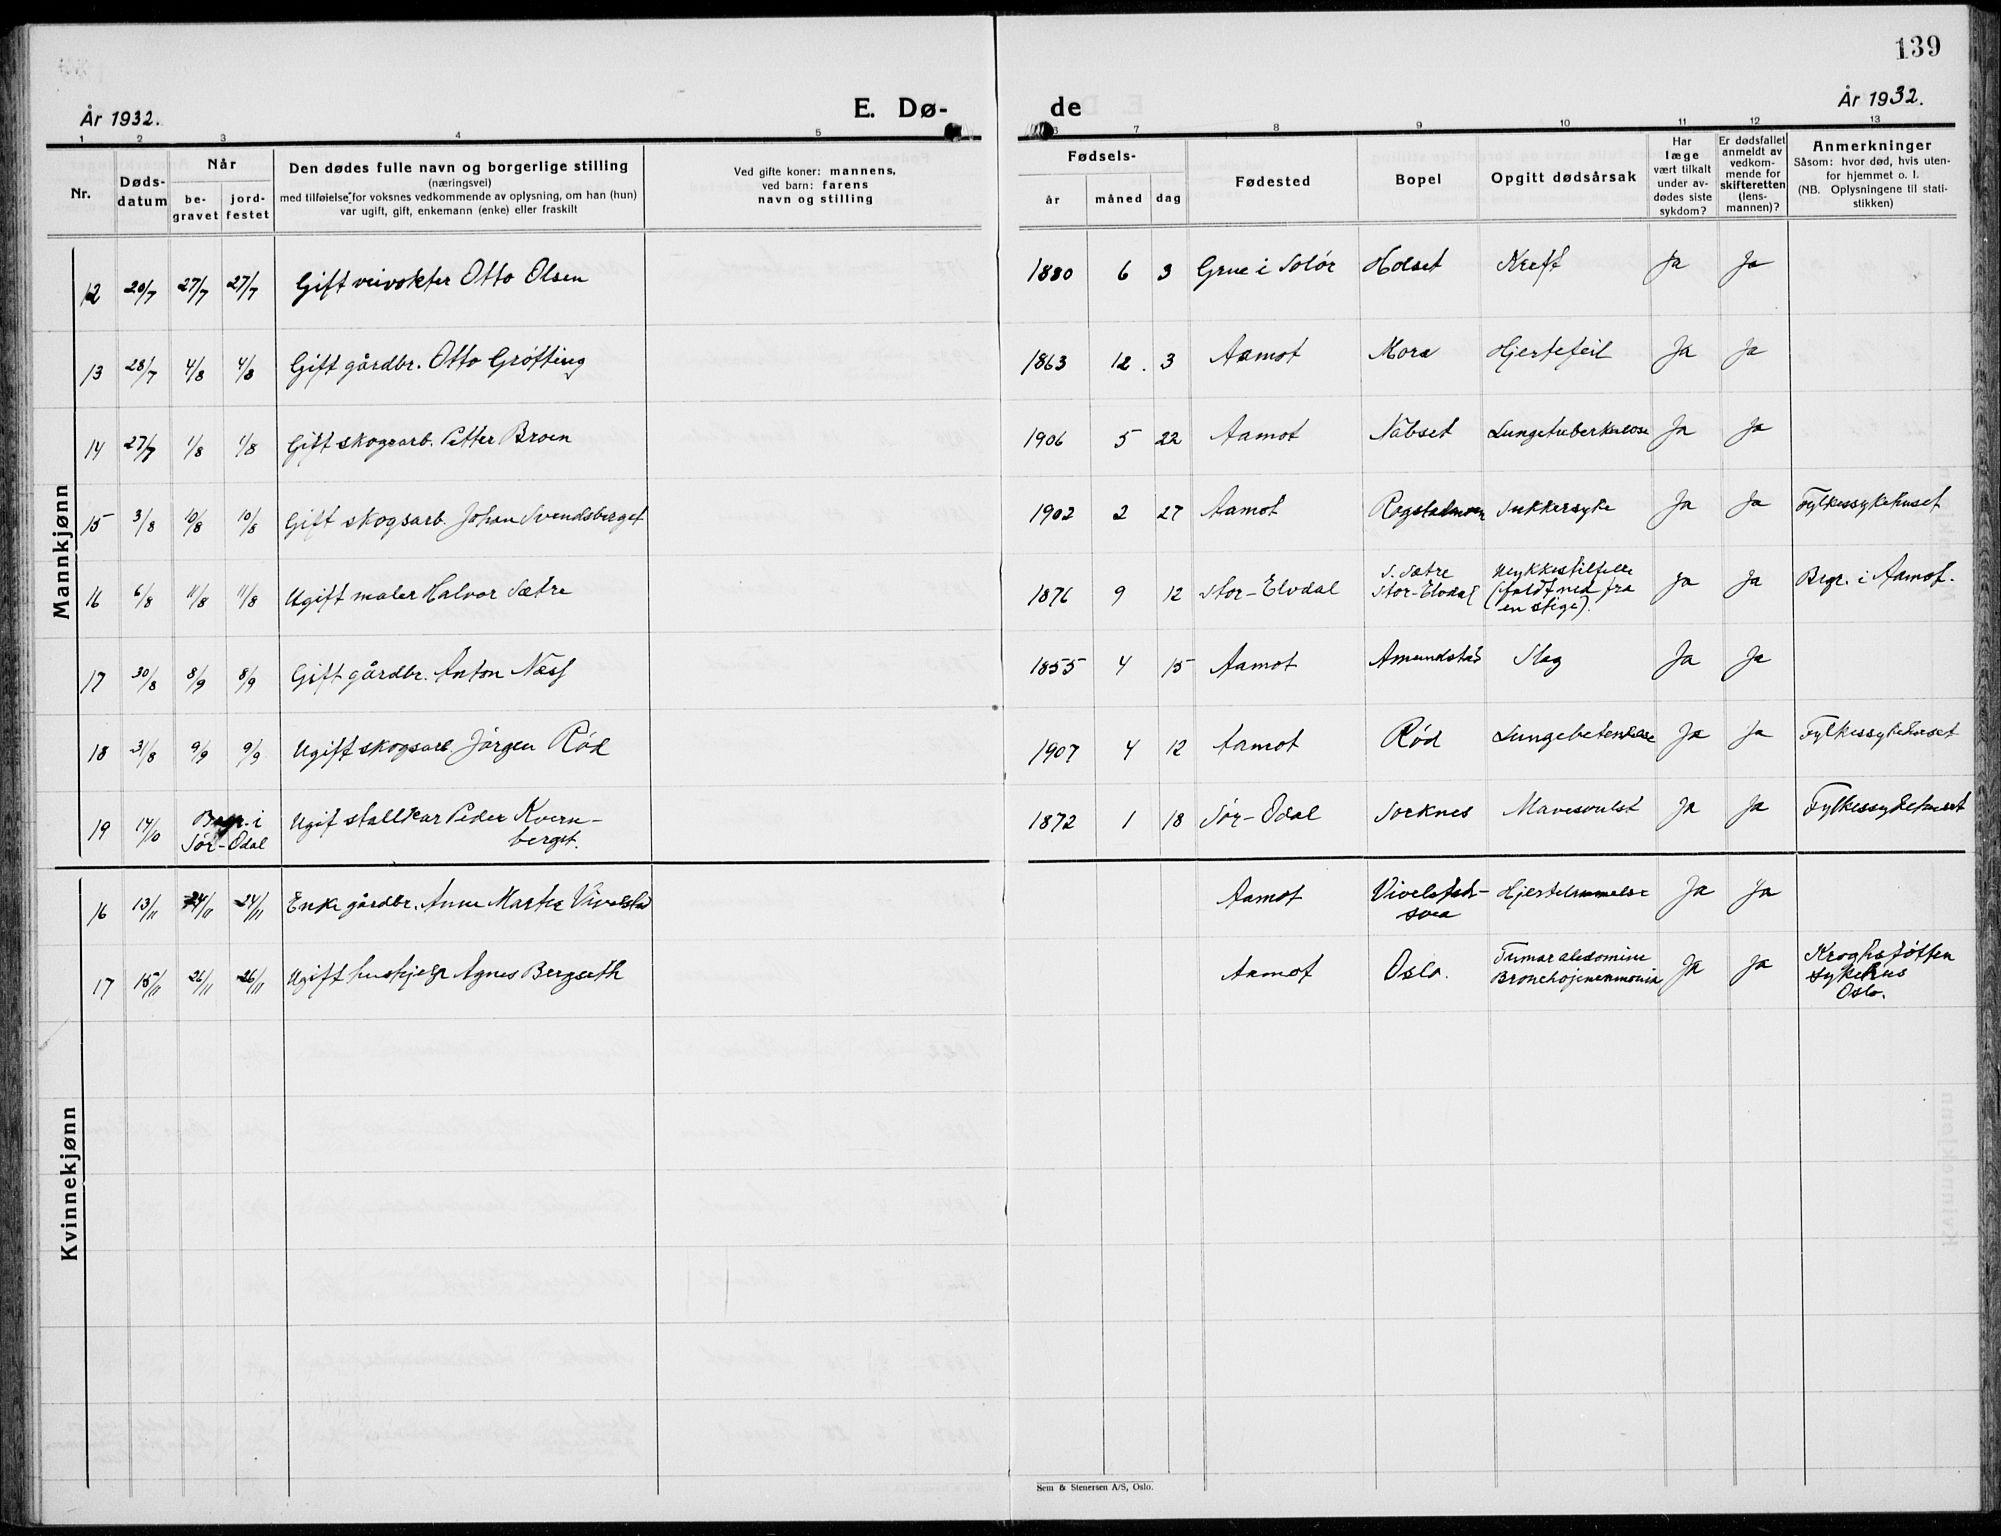 139
År 1932.
E. Dø-
de
År 1932.
1 2 3 4 5 6 7 8 9 10 11 12 13
Nr.
Døds-
datum
Når
be-
gravet
jord-
festet
Den dødes fulle navn og borgerlige stilling
(næringsvei)
med tilføielse for voksnes vedkommende av oplysning, om han (hun)
var ugift, gift, enkemann (enke) eller fraskilt
Ved gifte koner: mannens,
ved barn: farens
navn og stilling
Fødsels-
år
måned
dag
Fødested
Bopel
Opgitt dødsårsak
Har
læge
vært tilkalt
under av-
dødes siste
sykdom?
Er dødsfallet
anmeldt av
vedkom-
mende for
skifteretten
(lens-
mannen)?
Anmerkninger
Såsom: hvor død, hvis uten-
for hjemmet o. l.
(NB. Oplysningene til stati-
stikken)
Mannkjønn
12 20/7 27/7 27/7 Gift veivokter Otto Olsen 1880 6 3 Grue i Solør Holset Kreft Ja Ja
13 28/7 4/8 4/8 Gift gårdbr. Otto Grøtting 1863 12. 3 Aamot Mora Hjertefeil Ja Ja
14 27/7 1/8 1/8 Gift skogsarb. Petter Broen 1906 5 22 Aamot Nabset Lungetuberkulose Ja Ja
15 3/8 10/8 10/8 Gift skogsarb. Johan Svendsberget 1902 2 27 Aamot Rogstadmoen Sukkersyke Ja Ja Fylkessykehuset
16 6/8 11/8 11/8 Ugift maler Halvor Sætre 1876 9 12 Stor-Elvdal S. Sætre
Stor-Elvdal Ulykkestilfelle
(faldt ned fra
en stige). Ja Ja Begr. i Aamot.
17 30/8 8/9 8/9 Gift gårdbr. Anton Næss 1855 4 15 Aamot Amundstad Slag Ja Ja
18 31/8 9/9 9/9 Ugift skogsarb. Jørgen Rød 1907 4 12 Aamot Rød Ja Ja Fylkessykehuset
19 14/10 Begr. i
Sør-Odal Ugif stallkar Peder Kvern-
berget. 1872 1 18 Sør-Odal Sorknes Mavesvulst Ja Ja Fylkessykehuset
Kvinnekjønn
16 13/11 24/11 24/11 Enke gårdbr. Anne Marthe Vivelstad Aamot Vivelstad-
svea Hjertelammelse Ja Ja
17 15/11 26/11 26/11 Ugift hushjelp Agnes Bergseth Aamot Oslo. Tumor abdomine
Bronchopneumonia Ja Ja Kroghstøtten
sykehus
Oslo.
Sem & Stenersen A/S, Oslo.